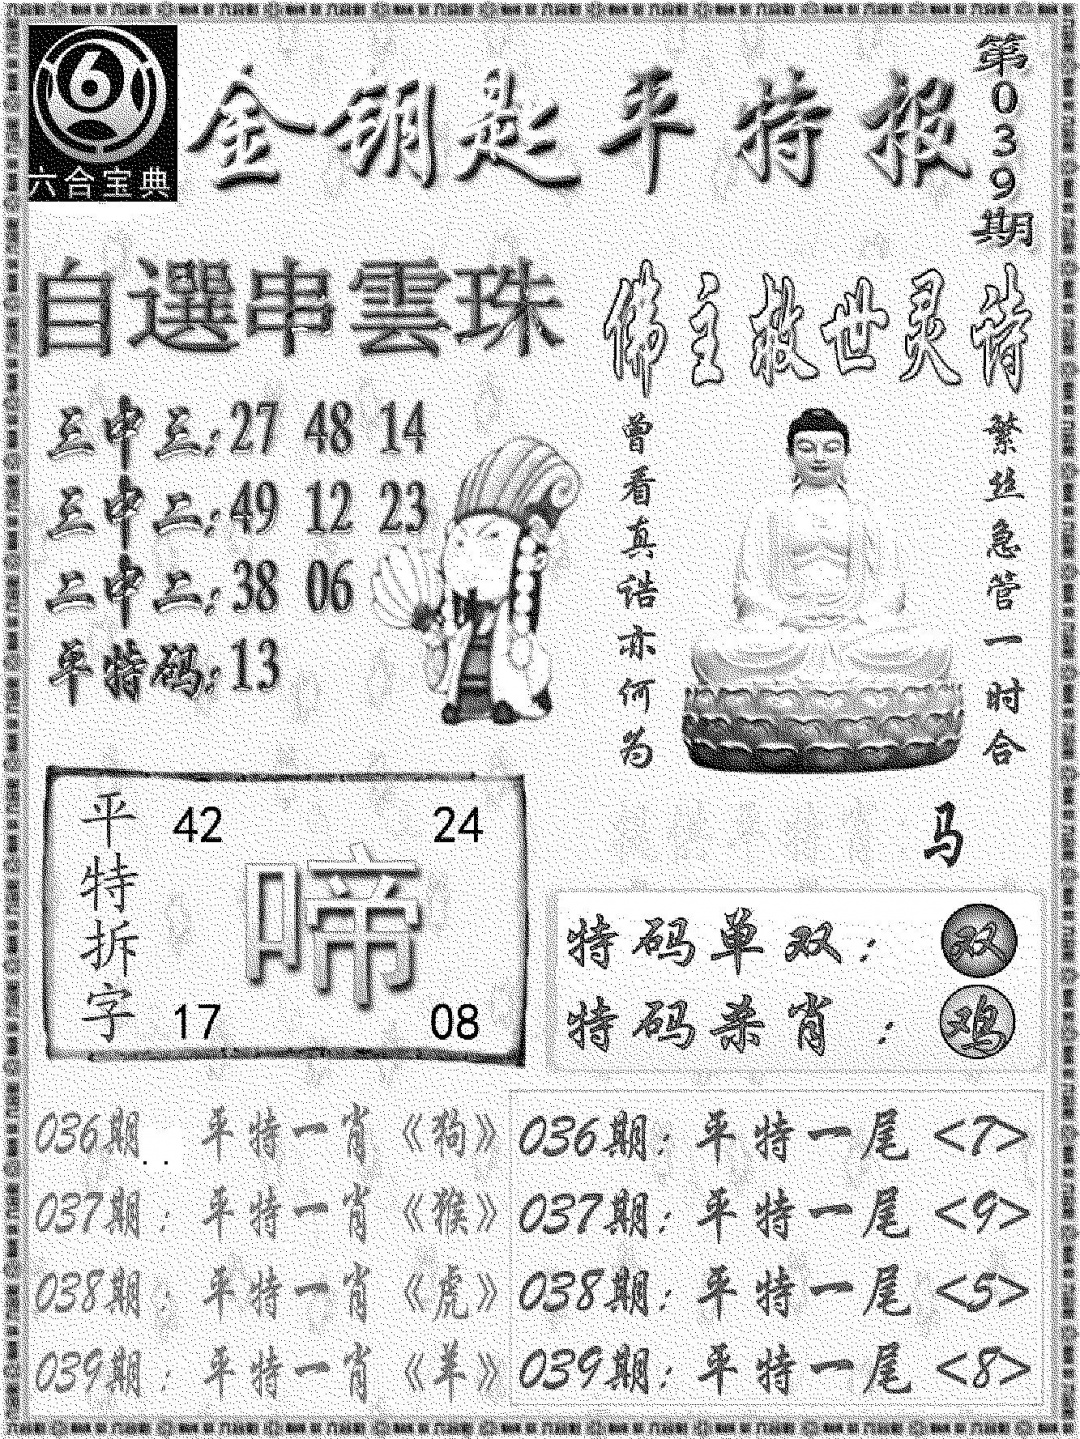 6
六合宝典
金钥匙平特报
第039期
自選串雲珠
三中三:27 48 14
三中二:49 12 23
二中二:38 06
单特码:13
佛主救世灵诗
繁丝急管一时合
曾看真诰亦何为
马
平特拆字
42 24
啼
17 08
特码单双: 双
特码杀肖: 鸡
036期 平特一肖《狗》
037期: 平特一肖《猴》
038期: 平特一肖《虎》
039期: 平特一肖《羊》
036期: 平特一尾<7>
037期: 平特一尾<9>
038期: 平特一尾<5>
039期: 平特一尾<8>